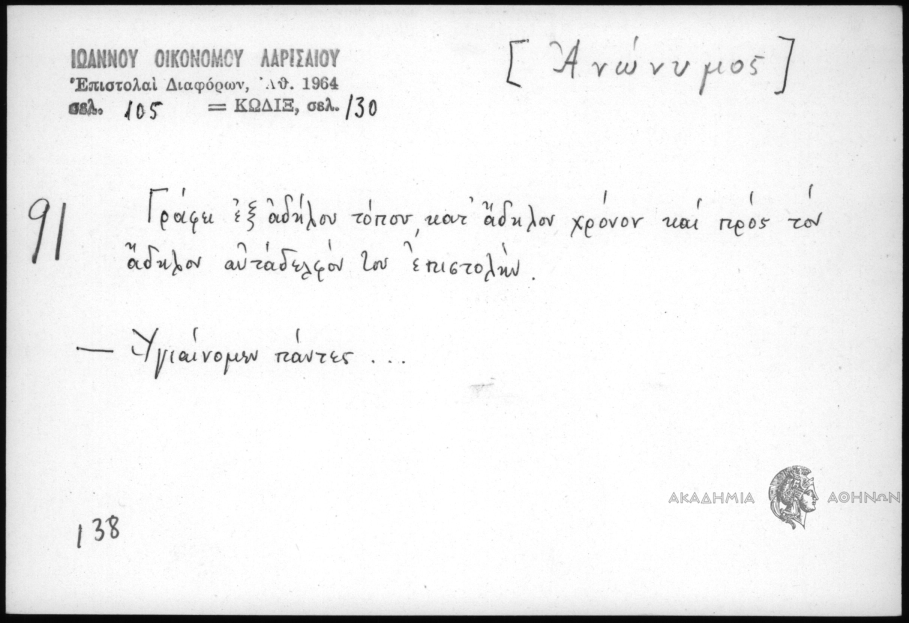 ΙΩΑΝΝΟΥ ΟΙΚΟΝΟΜΟΥ ΛΑΡΙΣΑΙΟΥ
Ἐπιστολαὶ Διαφόρων, Ἀθ. 1964
σελ. 105 = ΚΩΔΙΞ, σελ. 130
[Ἀνώνυμος]
91
Γράφει ἐξ ἀδήλου τόπου, κατ' ἄδηλον χρόνον καί πρός τόν
ἄδηλον αὐτάδελφόν του ἐπιστολήν.
— Ὑγιαίνομεν πάντες ...
ΑΚΑΔΗΜΙΑ ΑΘΗΝΩΝ
138